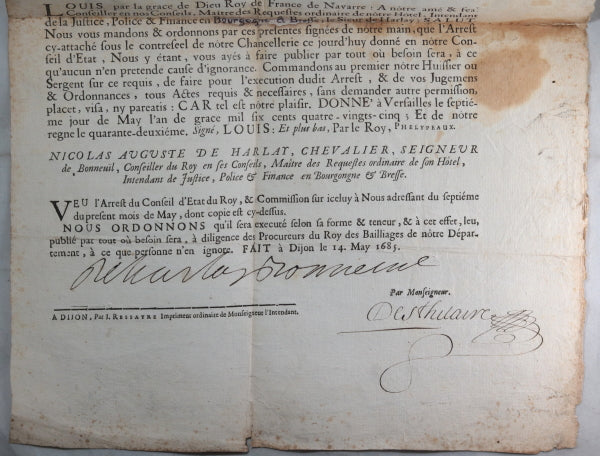 LOUIS par la grace de Dieu Roy de France & de Navarre : A nôtre amé & feal
Conseiller en nos Conseils, Maître des Requestes ordinaire de nôtre Hôtel, Intendant
de la Justice, Police & Finance en Bourgogne & Bresse, le Sieur de Harlay, SALUT.
Nous vous mandons & ordonnons par ces presentes signées de nôtre main, que l'Arrest
cy-attaché sous le contreseel de nôtre Chancellerie ce jourd'huy donné en nôtre Con-
seil d'Etat, Nous y étant, vous ayés à faire publier par tout où besoin sera, à ce
qu'aucun n'en pretende cause d'ignorance. Commandons au premier nôtre Huissier ou
Sergent sur ce requis, de faire pour l'execution dudit Arrest, & de vos Jugemens
& Ordonnances, tous Actes requis & necessaires, sans demander autre permission,
placet, visa, ny pareatis : CAR tel est nôtre plaisir. DONNE' à Versailles le septié-
me jour de May l'an de grace mil six cents quatre-vingts-cinq ; Et de nôtre
regne le quarante-deuxiéme. Signé, LOUIS : Et plus bas, Par le Roy, PHELYPEAUX.
NICOLAS AUGUSTE DE HARLAY, CHEVALIER, SEIGNEUR
de Bonneuil, Conseiller du Roy en ses Conseils, Maître des Requestes ordinaire de son Hôtel,
Intendant de Justice, Police & Finance en Bourgongne & Bresse.
VEU l'Arrest du Conseil d'Etat du Roy, & Commission sur iceluy à Nous adressant du septiéme
du present mois de May, dont copie est cy-dessus.
NOUS ORDONNONS qu'il sera executé selon sa forme & teneur, & à cet effet, leu,
publié par tout où besoin sera, à diligence des Procureurs du Roy des Bailliages de nôtre Dépar-
tement, à ce que personne n'en ignore. FAIT à Dijon le 14. May 1685.
De harlay Bonneuil
Par Monseigneur.
A DIJON, Par J. RESSAYRE Imprimeur ordinaire de Monseigneur l'Intendant.